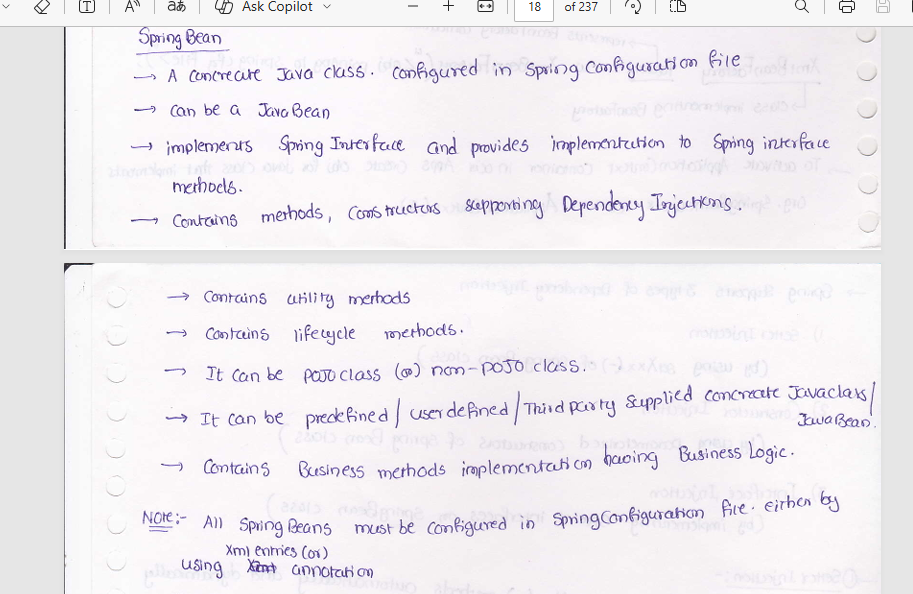 Ask Copilot
18 of 237
Spring Bean
→ A Concreate Java class. Configured in Spring Configuration file
→ can be a Java Bean
→ implements Spring Interface and provides implementation to Spring interface
methods.
→ Contains methods, Constructors supporting Dependency Injections.
→ Contains utility methods
→ Contains lifecycle methods.
→ It can be POJO class (or) non-POJO class.
→ It can be predefined / userdefined / Third party supplied concreate Javaclass /
JavaBean.
→ Contains Business methods implementation having Business Logic.
Note:- All Spring Beans must be configured in Spring Configuration file. either by
Xml entries (or)
using annotation